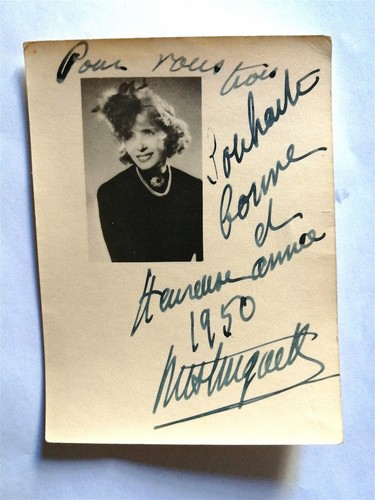 Pour vous trois
Souhaite
bonne
et
Heureuse année
1950
Mistinguett